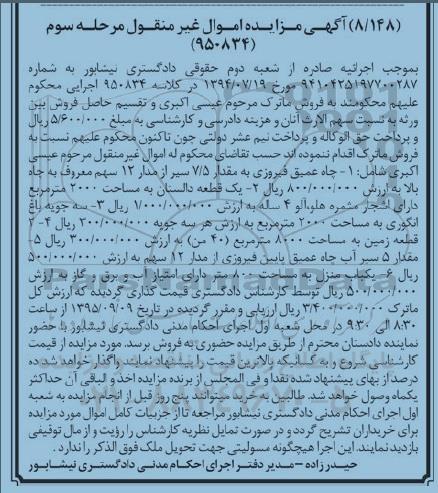 (۸/۱۴۸) آگهی مزایده اموال غیر منقول مرحله سوم
(۹۵۰۸۳۴)
بموجب اجرائیه صادره از شعبه دوم حقوقی دادگستری نیشابور به شماره
مورخ ۱۳۹۴/۰۷/۱۹ در کلاسه ۹۵۰۸۳۴ اجرایی محکوم
علیهم محکومند به فروش ماترک مرحوم عیسی اکبری و تقسیم حاصل فروش بین
ورثه به نسبت سهم الارث آنان و هزینه دادرسی و کارشناسی به مبلغ ۵/۶۰۰/۰۰۰ ریال
و پرداخت حق الوکاله و پرداخت نیم عشر دولتی چون تاکنون محکوم علیهم نسبت به
فروش ماترک اقدام ننموده اند حسب تقاضای محکوم له اموال غیرمنقول مرحوم عیسی
اکبری شامل: ۱- چاه عمیق فیروزی به مقدار ۷/۵ سیر از مدار ۱۲ سهم معروف به چاه
بالا به ارزش ۸۰۰/۰۰۰/۰۰۰ ریال ۲- یک قطعه دالستان به مساحت ۲۰۰۰ مترمربع
دارای اشجار مثمره هلو،آلو ۴ سله به ارزش ۱/۰۰۰/۰۰۰/۰۰۰ ریال ۳- سه جویه باغ
انگوری به مساحت ۲۰۰۰ مترمربع به ارزش هر سه جویه ۲۰۰/۰۰۰/۰۰۰ ریال ۴- ۲
قطعه زمین به مساحت ۸۰۰۰ مترمربع (۴۰ من) به ارزش ۳۰۰/۰۰۰/۰۰۰ ریال ۵-
مقدار ۵ سیر آب چاه عمیق پایین فیروزی از مدار ۱۲ سهم به ارزش ۵۰۰/۰۰۰/۰۰۰
ریال ۶- یکباب منزل به مساحت ۸۰۰ متر دارای امتیاز آب و برق و گاز به ارزش
ریال توسط کارشناس دادگستری قیمت گذاری گردیده که ارزش کل
ماترک ۳/۴۰۰/۰۰۰/۰۰۰ ریال ارزیابی و مقرر گردیده در تاریخ ۱۳۹۵/۰۹/۰۹ از ساعت
۸:۳۰ الی ۹:۳۰ در محل شعبه اول اجرای احکام مدنی دادگستری نیشابور با حضور
نماینده دادستان محترم از طریق مزایده حضوری به فروش برسد. مورد مزایده از قیمت
کارشناسی شروع و به کسانیکه بالاترین قیمت را پیشنهاد نمایند واگذار خواهد شد ده
درصد از بهای پیشنهاد شده نقدا و فی المجلس از برنده مزایده اخذ و لبقی آن حداکثر
یکماه وصول خواهد شد. طالبین به خرید میتوانند پنج روز قبل از انجام مزایده به شعبه
اول اجرای احکام مدنی دادگستری نیشابور مراجعه تا از جزییات کامل اموال مورد مزایده
برای خریداران تشریح گردد و در صورت تمایل نظریه کارشناس را رؤیت و از مال توقیفی
بازدید نمایند. این اجرا هیچگونه مسولیتی جهت تحویل ملک فوق الذکر را ندارد.
حیدرزاده – مدیر دفتر اجرای احکام مدنی دادگستری نیشابور